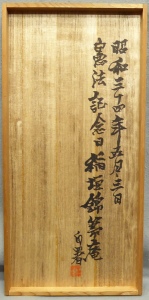 昭和三十四年五月三日
憲法記念日 稲垣錦荘庵